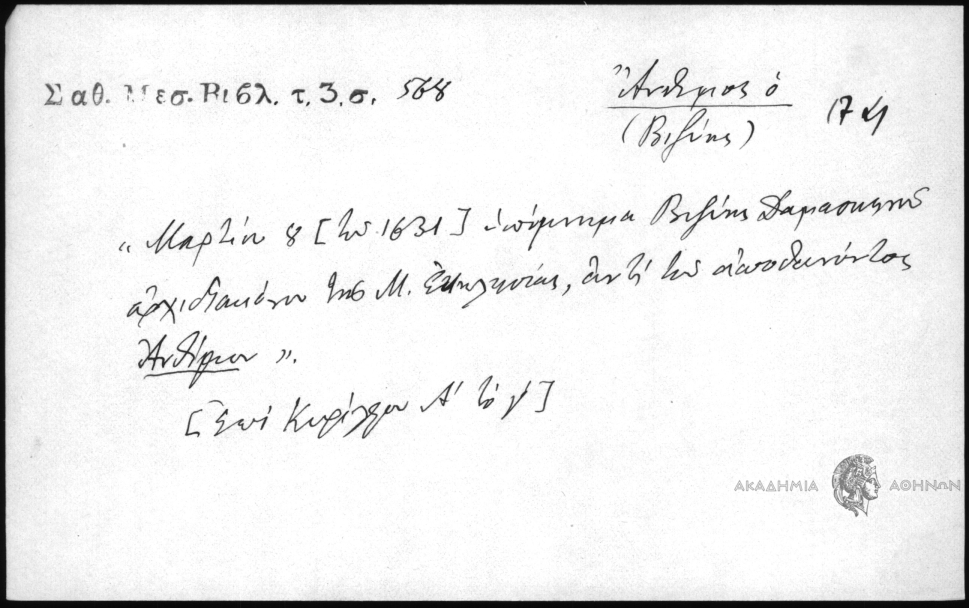 Σαθ. Μεσ. Βιβλ. τ. 3. σ. 568
Ἄνθιμος ὁ
(Βιζύης)
„ Μαρτίου 8 [τοῦ 1631] ὑπόμνημα Βιζύης Δαμασκηνοῦ
ἀρχιδιακόνου τῆς Μ. Ἐκκλησίας, ἀντὶ τοῦ ἀποθανόντος
Ἀνθίμου ".
[Ἐπὶ Κυρίλλου Α' τὸ γ']
ΑΚΑΔΗΜΙΑ ΑΘΗΝΩΝ